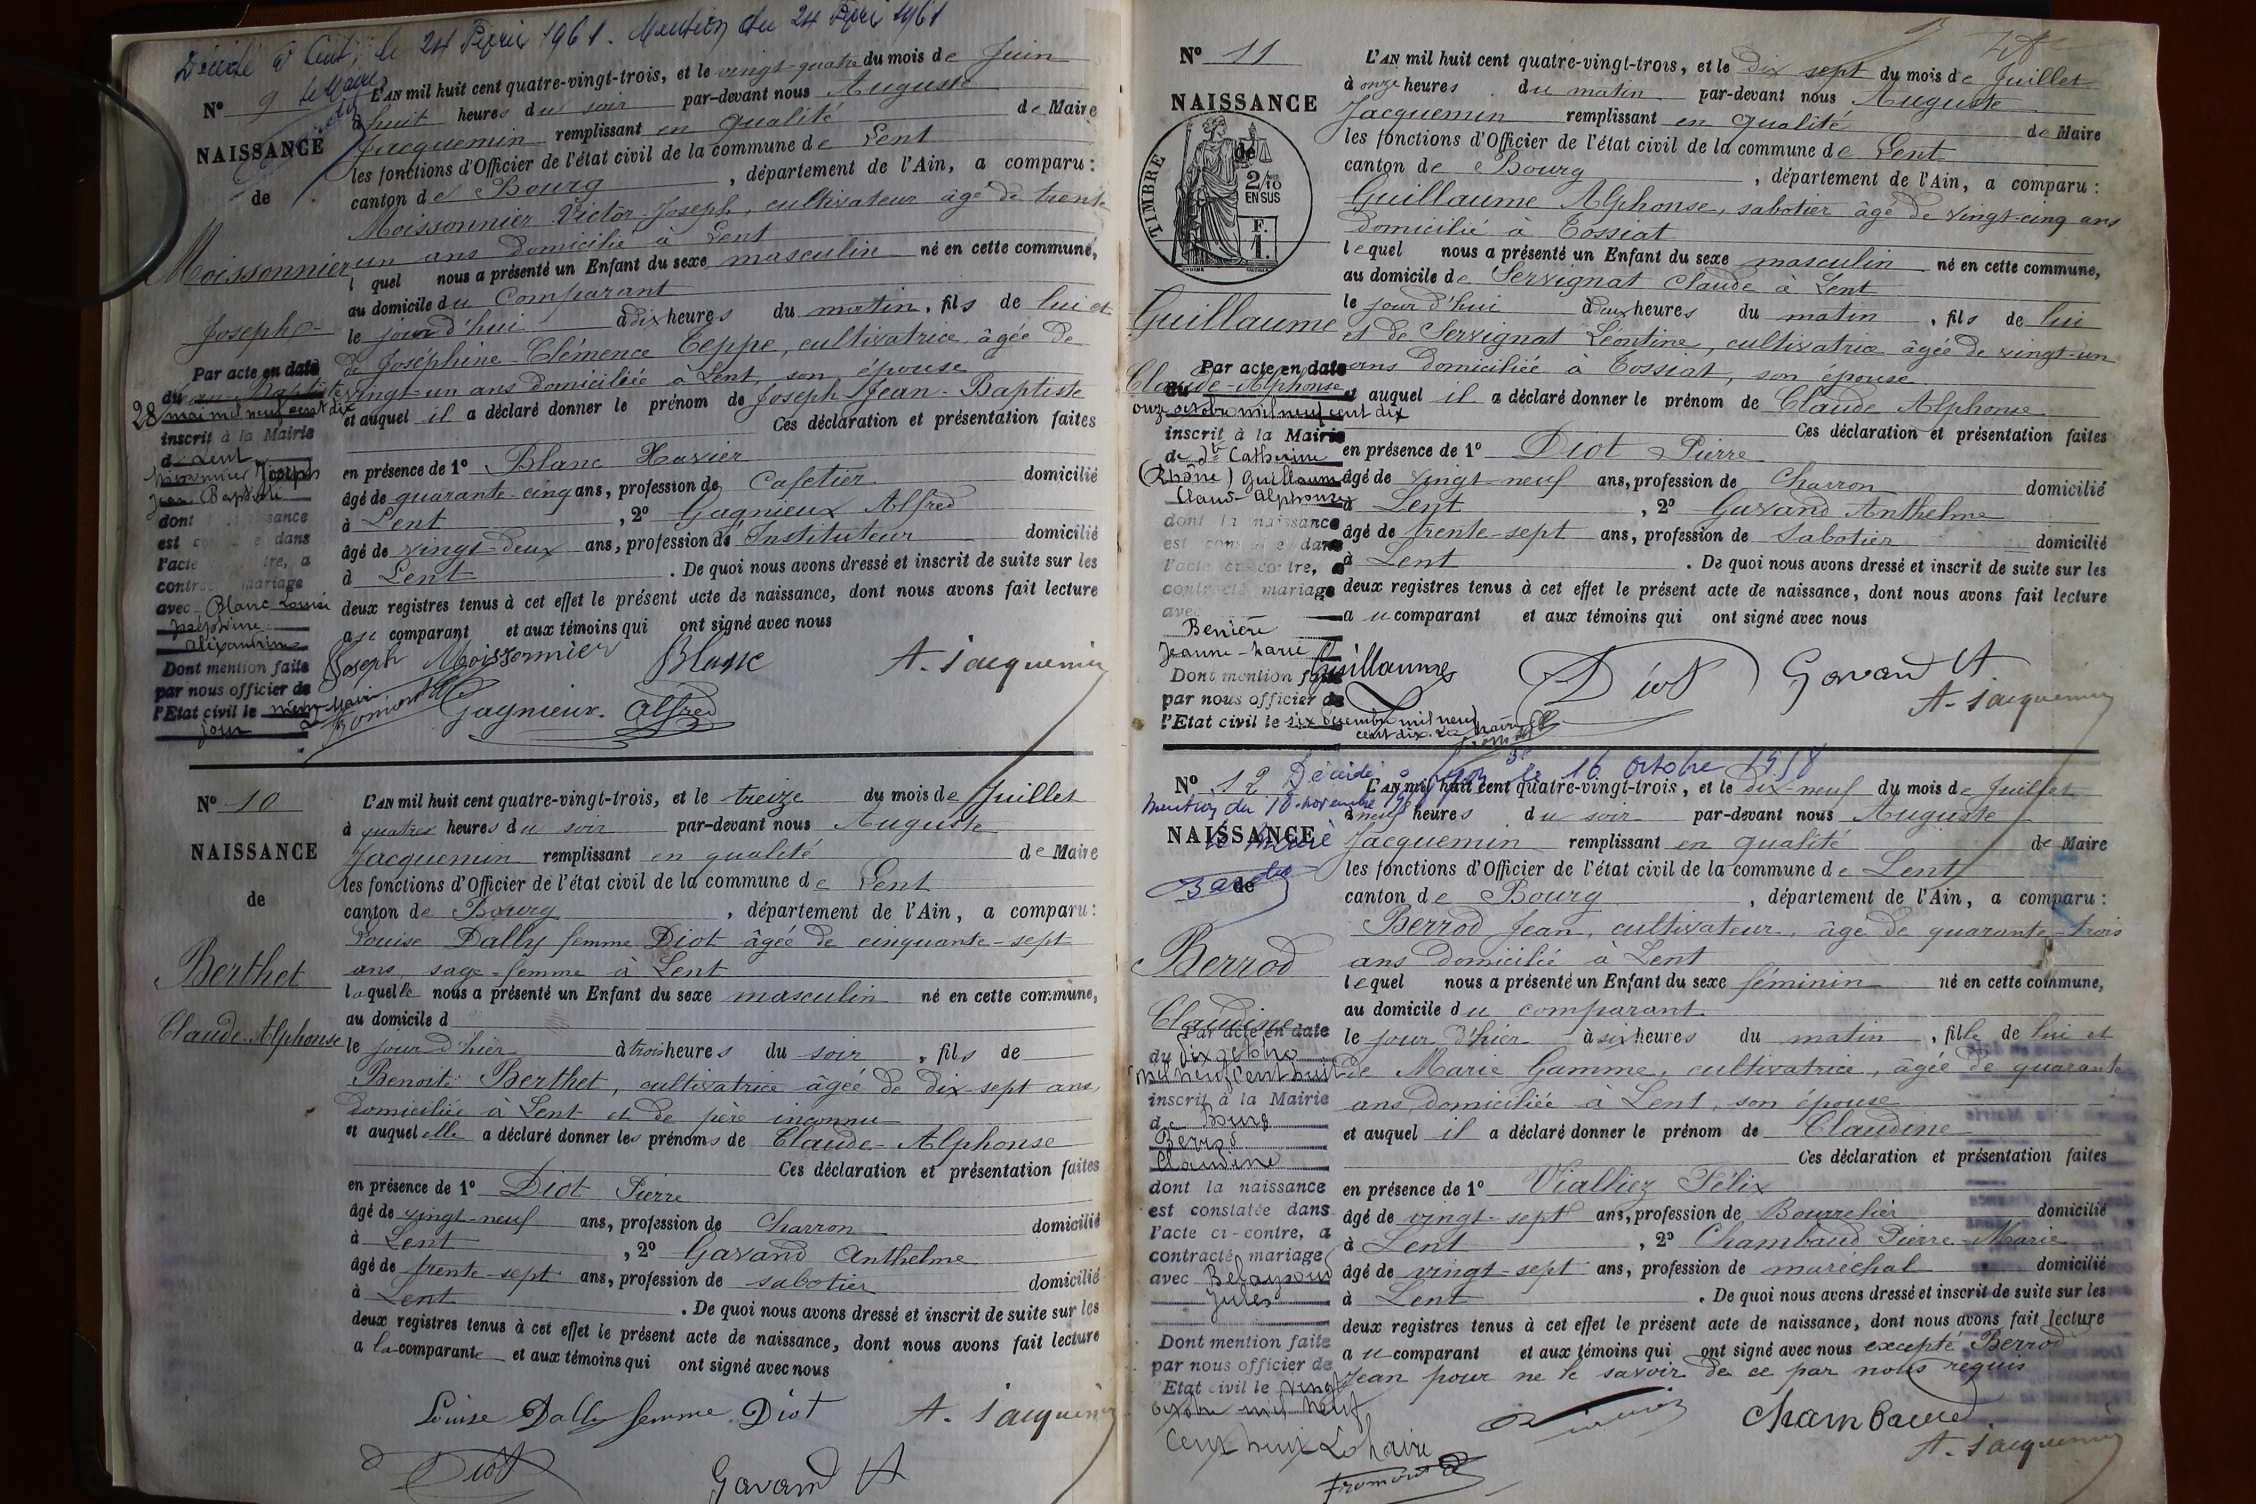 Décédé à Lent, le 24 Février 1961. Mention du 24 Février 1961
le Maire
N° 9
NAISSANCE
de
Moissonnier
Joseph
L'AN mil huit cent quatre-vingt-trois, et le vingt-quatre du mois de Juin
à huit heures du soir par-devant nous Auguste
Jacquemin remplissant en qualité de Maire
les fonctions d'Officier de l'état civil de la commune de Lent
canton de Bourg, département de l'Ain, a comparu :
Moissonnier Victor Joseph, cultivateur âgé de trente
un ans domicilié à Lent
lequel nous a présenté un Enfant du sexe masculin né en cette commune,
au domicile du Comparant
le jourd'hui à dix heures du matin, fils de lui et
de Joséphine-Clémence Teppe, cultivatrice âgée de
vingt-un ans domiciliée à Lent, son épouse
et auquel il a déclaré donner le prénom de Joseph Jean-Baptiste
Ces déclaration et présentation faites
en présence de 1° Blanc Xavier
âgé de quarante-cinq ans, profession de Cafetier domicilié
à Lent, 2° Gagnieux Alfred
âgé de vingt-deux ans, profession de Instituteur domicilié
à Lent. De quoi nous avons dressé et inscrit de suite sur les
deux registres tenus à cet effet le présent acte de naissance, dont nous avons fait lecture
au comparant et aux témoins qui ont signé avec nous
Joseph Moissonnier Blanc A. Jacquemin
Gagnieux Alfred
Par acte en date
du
28 mai mil neuf cent dix
inscrit à la Mairie
de Lent
Moissonnier Joseph
Jean Baptiste
dont la naissance
est constatée dans
l'acte ci-contre, a
contracté mariage
avec Blanc Louise
Joséphine
Alexandrine
Dont mention faite
par nous officier de
l'Etat civil le même
jour
Le Maire
N° 10
NAISSANCE
de
Berthet
Claude-Alphonse
L'AN mil huit cent quatre-vingt-trois, et le treize du mois de Juillet
à quatre heures du soir par-devant nous Auguste
Jacquemin remplissant en qualité de Maire
les fonctions d'Officier de l'état civil de la commune de Lent
canton de Bourg, département de l'Ain, a comparu :
Louise Dally femme Diot âgée de cinquante-sept
ans, sage-femme à Lent
laquelle nous a présenté un Enfant du sexe masculin né en cette commune,
au domicile d
le jour d'hier à trois heures du soir, fils de
Benoite Berthet, cultivatrice âgée de dix-sept ans,
domiciliée à Lent et de père inconnu
et auquel elle a déclaré donner les prénoms de Claude-Alphonse
Ces déclaration et présentation faites
en présence de 1° Diot Pierre
âgé de vingt-neuf ans, profession de Charron domicilié
à Lent, 2° Gavand Anthelme
âgé de trente-sept ans, profession de sabotier domicilié
à Lent. De quoi nous avons dressé et inscrit de suite sur les
deux registres tenus à cet effet le présent acte de naissance, dont nous avons fait lecture
a la comparante et aux témoins qui ont signé avec nous
Louise Dally femme Diot A. Jacquemin
Diot Gavand A
N° 11
NAISSANCE
de
TIMBRE
2/10
EN SUS
F.
1.
Guillaume
Claude-Alphonse
L'AN mil huit cent quatre-vingt-trois, et le dix sept du mois de Juillet
à onze heures du matin par-devant nous Auguste
Jacquemin remplissant en qualité de Maire
les fonctions d'Officier de l'état civil de la commune de Lent
canton de Bourg, département de l'Ain, a comparu :
Guillaume Alphonse, sabotier âgé de vingt-cinq ans
domicilié à Tossiat
lequel nous a présenté un Enfant du sexe masculin né en cette commune,
au domicile de Servignat Claude à Lent
le jour d'hui à deux heures du matin, fils de lui
et de Servignat Léontine, cultivatrice âgée de vingt-un
ans domiciliée à Tossiat, son épouse
et auquel il a déclaré donner le prénom de Claude Alphonse
Ces déclaration et présentation faites
en présence de 1° Diot Pierre
âgé de vingt-neuf ans, profession de Charron domicilié
à Lent, 2° Gavand Anthelme
âgé de trente-sept ans, profession de Sabotier domicilié
à Lent. De quoi nous avons dressé et inscrit de suite sur les
deux registres tenus à cet effet le présent acte de naissance, dont nous avons fait lecture
au comparant et aux témoins qui ont signé avec nous
Guillaume Diot Gavand A
A. Jacquemin
Par acte en date
du
onze octobre mil neuf cent dix
inscrit à la Mairie
de Ste Catherine
(Rhône) Guillaume
Claude-Alphonse
dont la naissance
est constatée dans
l'acte ci-contre, a
contracté mariage
avec
Jeanne-Marie
Dont mention faite
par nous officier de
l'Etat civil le six décembre mil neuf
cent dix. Le Maire
N° 12
Décédée à Lyon 3e le 16 octobre 1958
mention du 10 novembre
le Maire
NAISSANCE
de
Berrod
Claudine
L'AN mil huit cent quatre-vingt-trois, et le dix-neuf du mois de Juillet
à neuf heures du soir par-devant nous Auguste
Jacquemin remplissant en qualité de Maire
les fonctions d'Officier de l'état civil de la commune de Lent
canton de Bourg, département de l'Ain, a comparu :
Berrod Jean, cultivateur, âgé de quarante-trois
ans domicilié à Lent
lequel nous a présenté un Enfant du sexe féminin né en cette commune,
au domicile du comparant
le jour d'hier à six heures du matin, fille de lui et
de Marie Gamme, cultivatrice, âgée de quarante
ans, domiciliée à Lent, son épouse
et auquel il a déclaré donner le prénom de Claudine
Ces déclaration et présentation faites
en présence de 1° Vialliez Félix
âgé de vingt-sept ans, profession de Bourrelier domicilié
à Lent, 2° Chambaud Pierre-Marie
âgé de vingt-sept ans, profession de maréchal domicilié
à Lent. De quoi nous avons dressé et inscrit de suite sur les
deux registres tenus à cet effet le présent acte de naissance, dont nous avons fait lecture
au comparant et aux témoins qui ont signé avec nous excepté Berrod
Jean pour ne le savoir de ce par nous requis
Chambaud
A. Jacquemin
Par acte en date
du dix octobre
mil neuf cent huit
inscrit à la Mairie
de Bourg
Berrod
Claudine
dont la naissance
est constatée dans
l'acte ci-contre, a
contracté mariage
avec
Jules
Dont mention faite
par nous officier de
l'Etat civil le vingt
octobre mil neuf
cent huit Le Maire